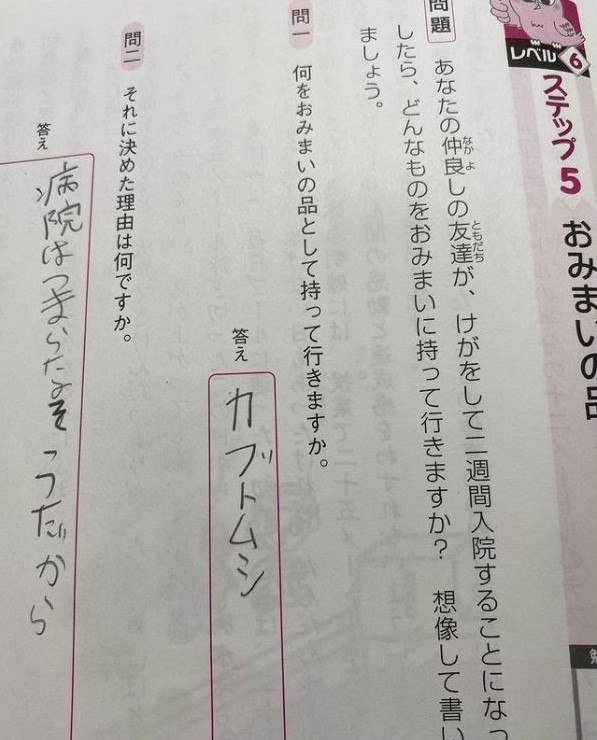 レベル6
ステップ5
おみまいの品
問題
あなたの仲良しの友達が、けがをして二週間入院することになっ
したら、どんなものをおみまいに持って行きますか？　想像して書い
ましょう。
問一　何をおみまいの品として持って行きますか。
答え
カブトムシ
問二　それに決めた理由は何ですか。
答え
病院はつまらなそうだから